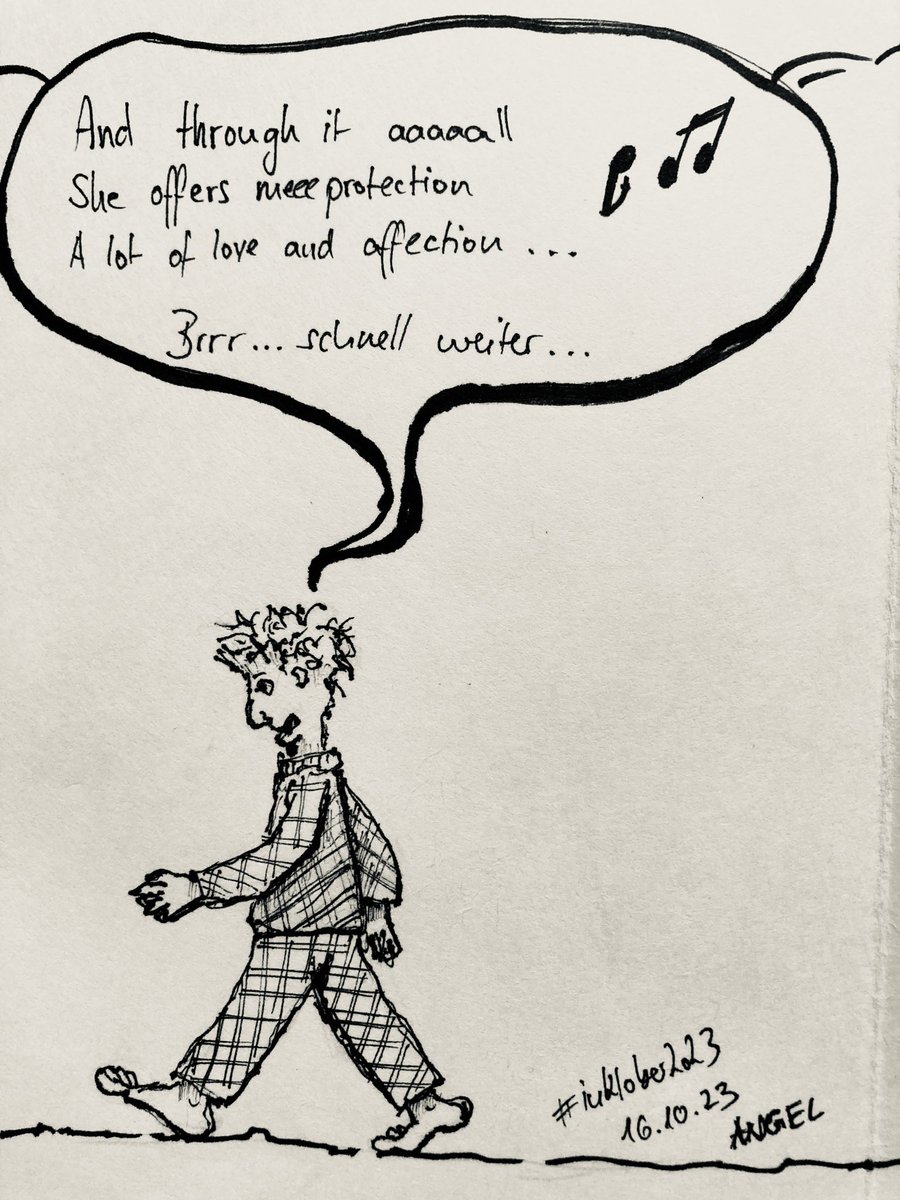 And through it aaaaall
She offers meee protection
A lot of love and affection...
Brrr... schnell weiter...
#inktober2023
16.10.23
ANGEL